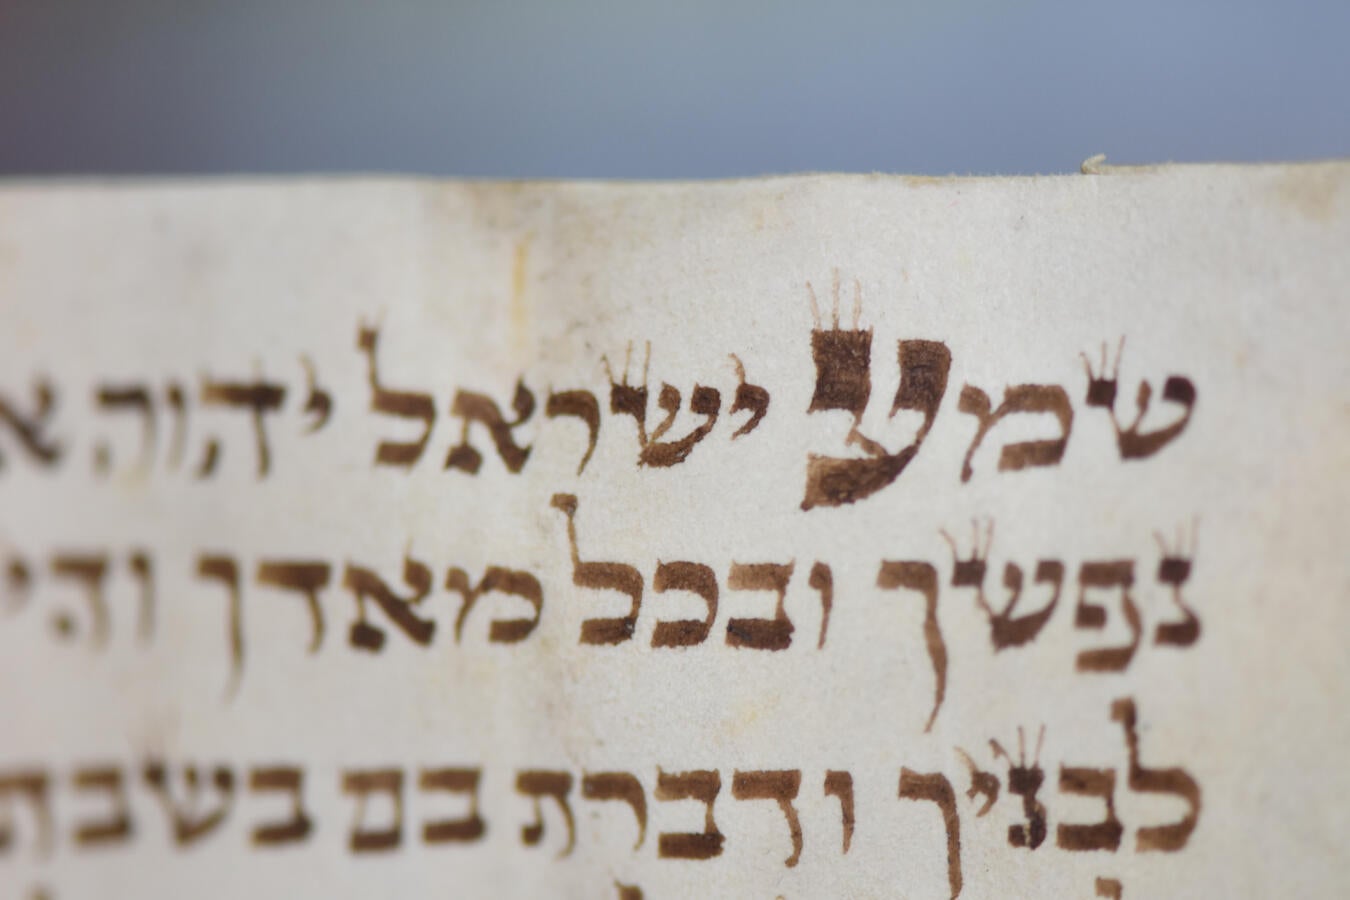 שמע ישראל יהוה
נפשך ובכל מאדך
לבניך ודברת בם בשבת